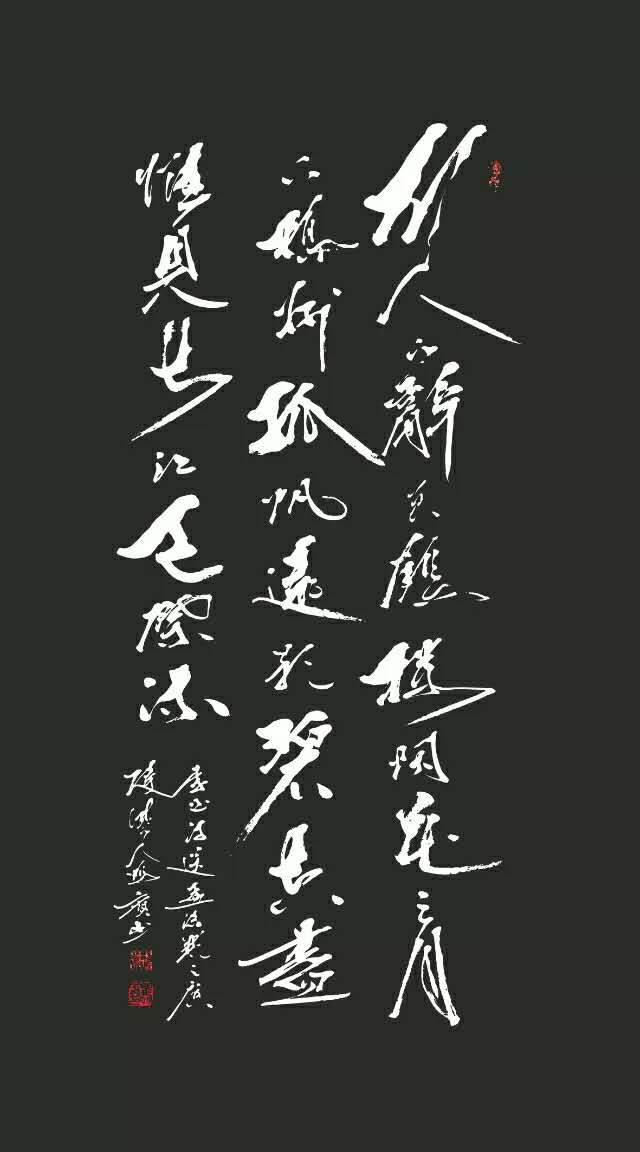 故人西辭黃鶴樓烟花三月
下揚州孤帆遠影碧空盡
惟見長江天際流
李白詩送孟浩然之廣
陵